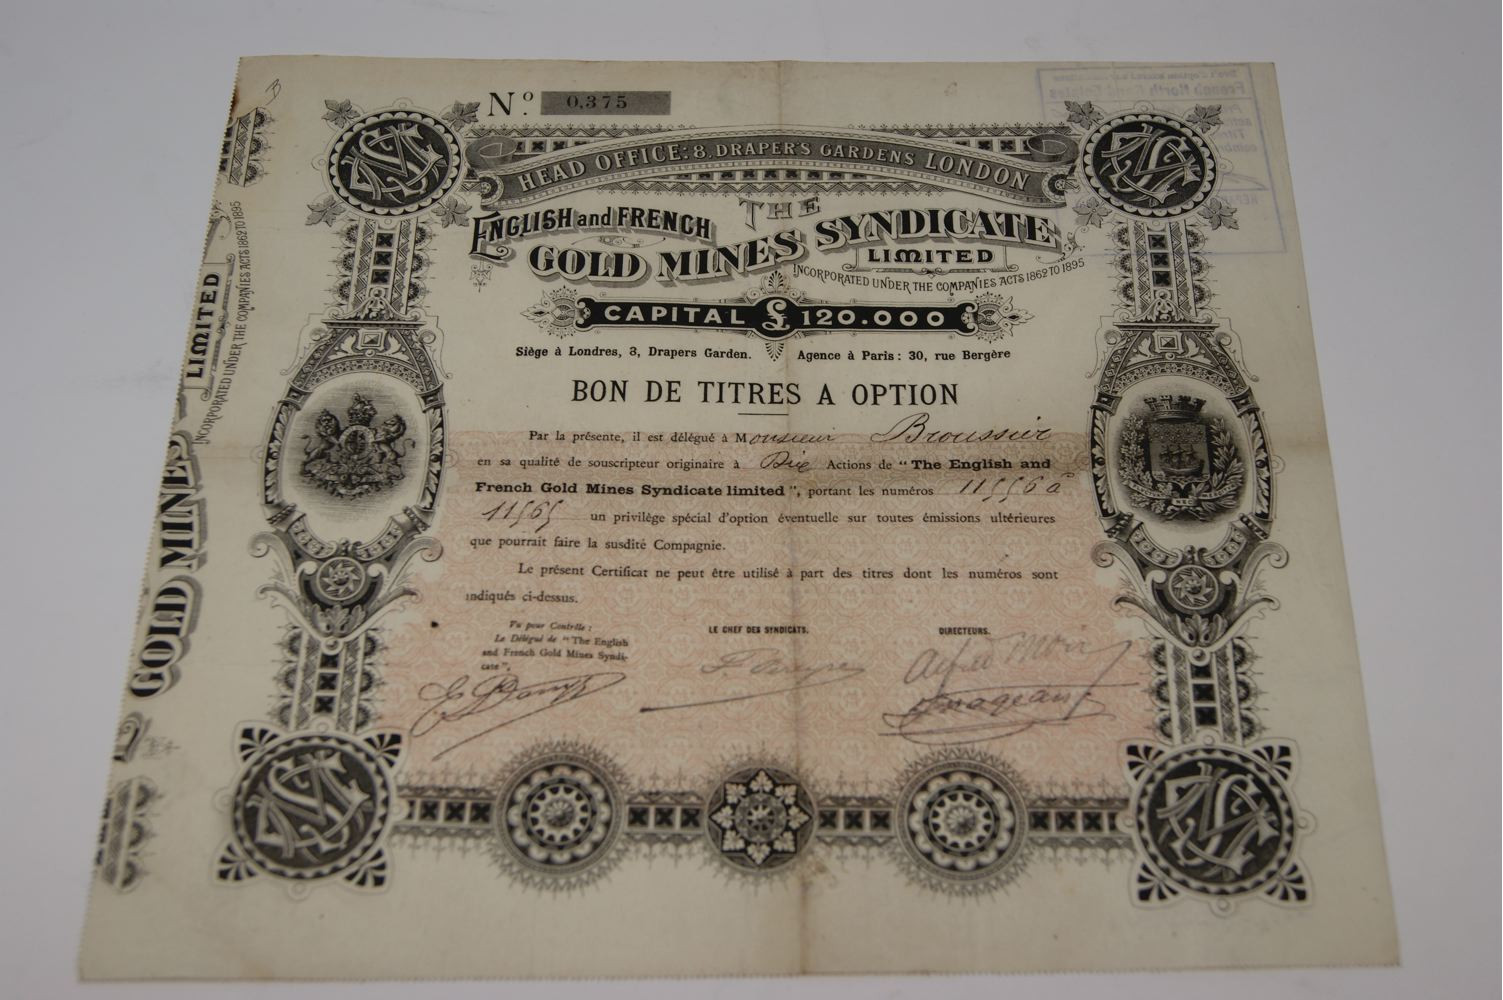 B
Nº. 0,375
HEAD OFFICE: 8. DRAPER'S GARDENS LONDON
THE
ENGLISH and FRENCH
GOLD MINES SYNDICATE
LIMITED
INCORPORATED UNDER THE COMPANIES ACTS 1862 TO 1895
CAPITAL £ 120.000
Siège à Londres, 3, Drapers Garden. Agence à Paris : 30, rue Bergère
BON DE TITRES A OPTION
Par la présente, il est délégué à Monsieur Broussier
en sa qualité de souscripteur originaire à Dix Actions de "The English and
French Gold Mines Syndicate limited", portant les numéros 11556 à
11565 un privilège spécial d'option éventuelle sur toutes émissions ultérieures
que pourrait faire la susdite Compagnie.
Le présent Certificat ne peut être utilisé à part des titres dont les numéros sont
indiqués ci-dessus.
Vu pour Contrôle :
Le Délégué de "The English
and French Gold Mines Syndi-
cate",
LE CHEF DES SYNDICATS.
DIRECTEURS.
GOLD MINES
LIMITED
INCORPORATED UNDER THE COMPANIES ACTS 1862 TO 1895